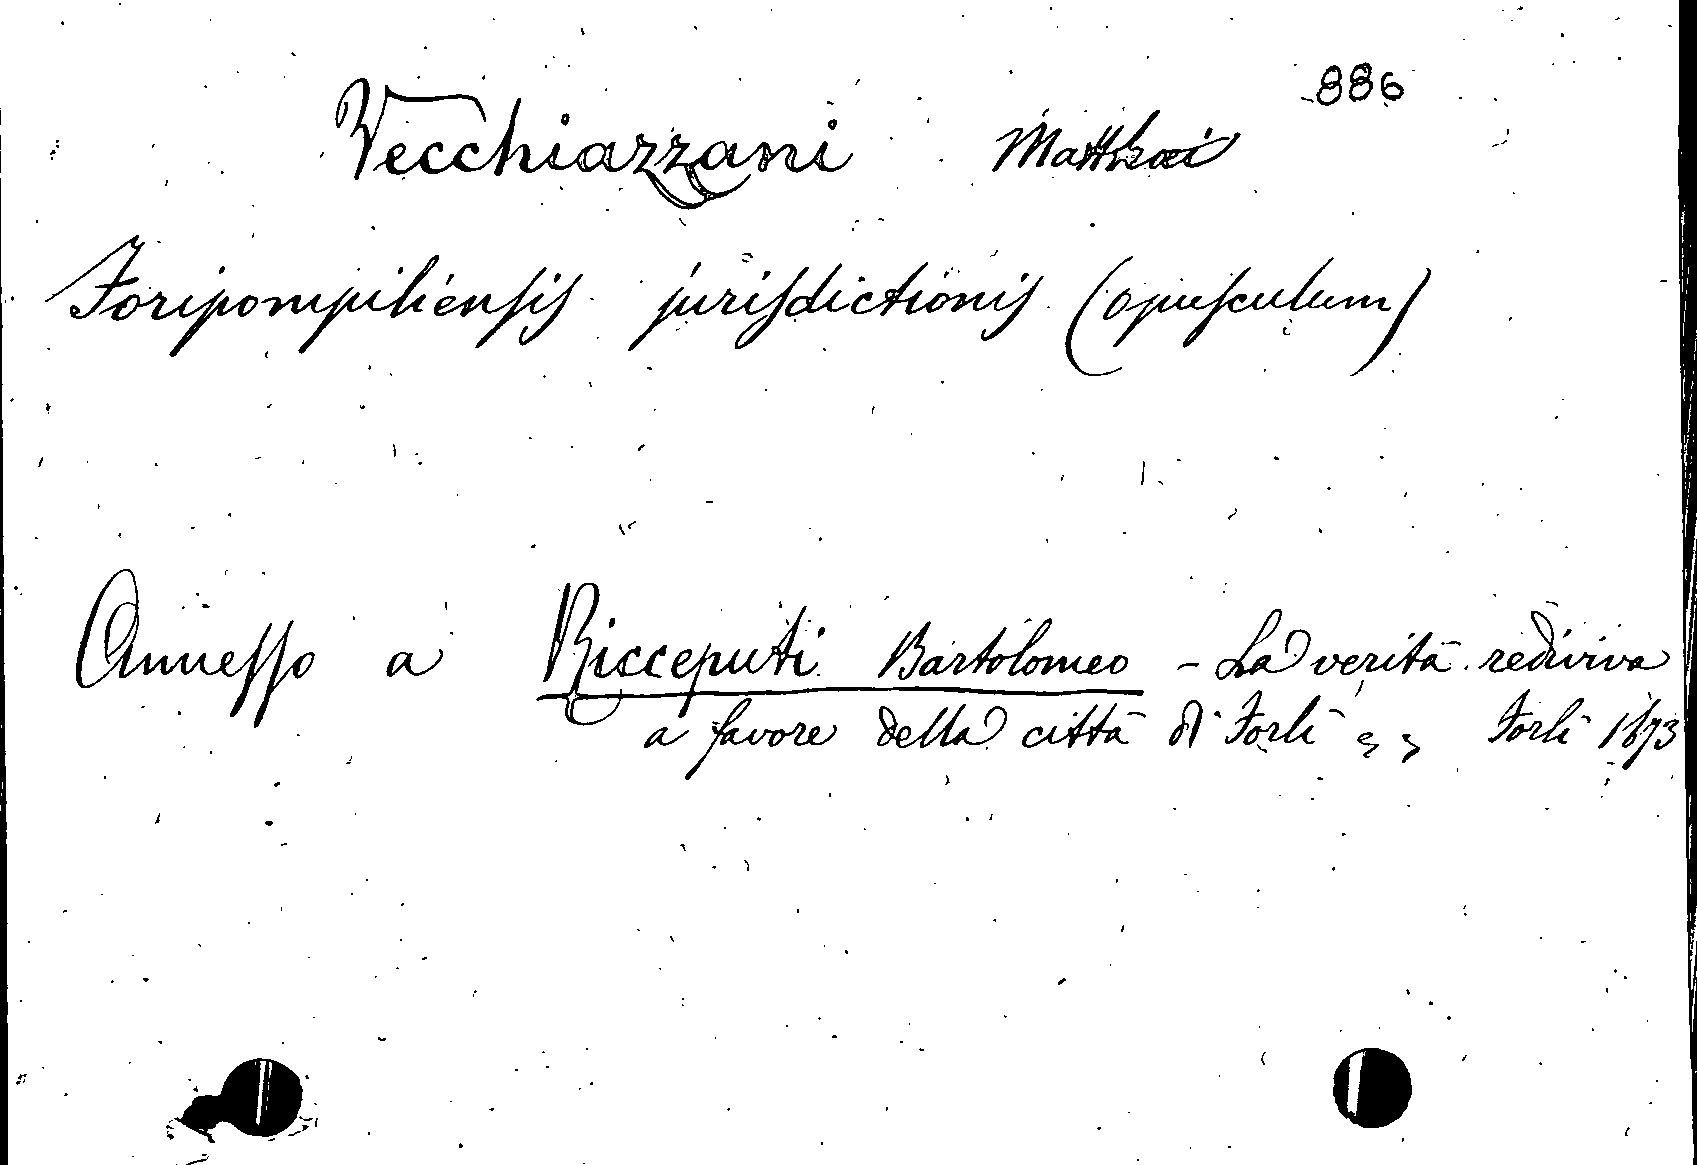 886
Vecchiazzani Matthæi
Foripompiliensis jurisdictionis (opusculum)
Annesso a Ricceputi Bartolomeo - La verità rediviva
a favore della città di Forlì „ „ Forlì 1673